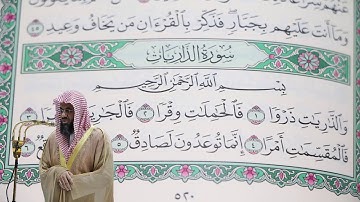 وَمَا أَنتَ عَلَيْهِم بِجَبَّارٍ فَذَكِّرْ بِالْقُرْءَانِ مَن يَخَافُ وَعِيدِ ٤٥
سُورَةُ الذَّارِيَاتِ
بِسْمِ اللَّهِ الرَّحْمَٰنِ الرَّحِيمِ
وَالذَّارِيَاتِ ذَرْوًا ١ فَالْحَامِلَاتِ وِقْرًا ٢ فَالْجَارِيَاتِ
فَالْمُقَسِّمَاتِ أَمْرًا ٤ إِنَّمَا تُوعَدُونَ لَصَادِقٌ ٥
٥٢٠